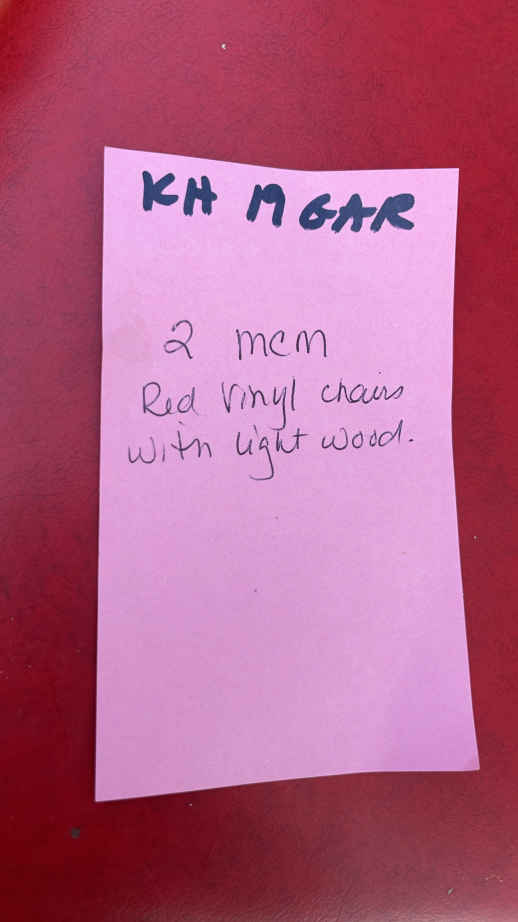 KH M GAR
2 mcm
Red Vinyl chairs
with light wood.